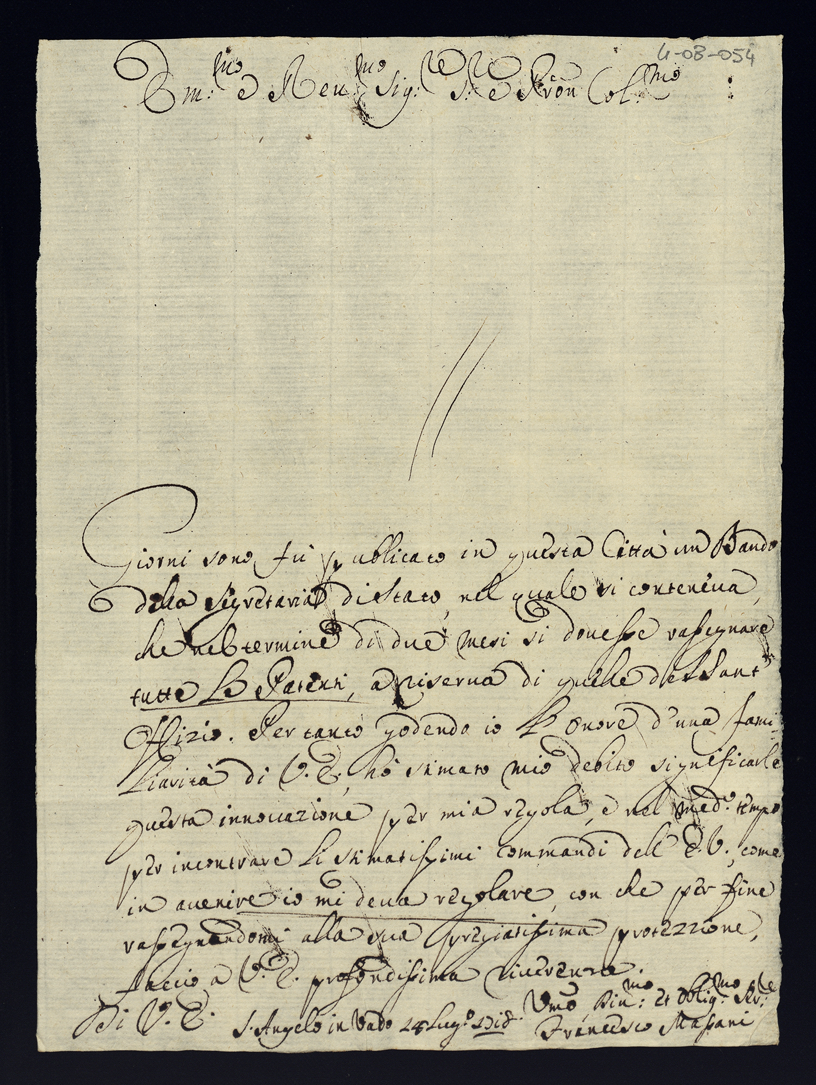 4-08-054
Em:mo e Reu:mo Sig: S:e e Pron Col:mo
Giorni sono fù publicato in questa Città un Bando
della Segretaria di Stato, nel quale si conteneua,
che nel termine di due mesi si douesse rassegnare
tutte le Patenti, a riserua di quelle del Sant
Offizio. Per tanto godendo io l'onore d'una fami-
liarità di V. E., hò stimato mio debito significarle
questa innouazione per mia regola, e nel med.o tempo
per incontrare li stimatissimi commandi dell'E. V., come
in auenire io mi deua regolare, con che per fine
rassegnandomi alla sua pregiatissima protezzione,
faccio a V. E. profondissima riuerenza.
Di V. E. S. Angelo in Vado 24 Lug.o Vmo, Diu:mo et Oblig:mo Ser:e
Francesco Massani